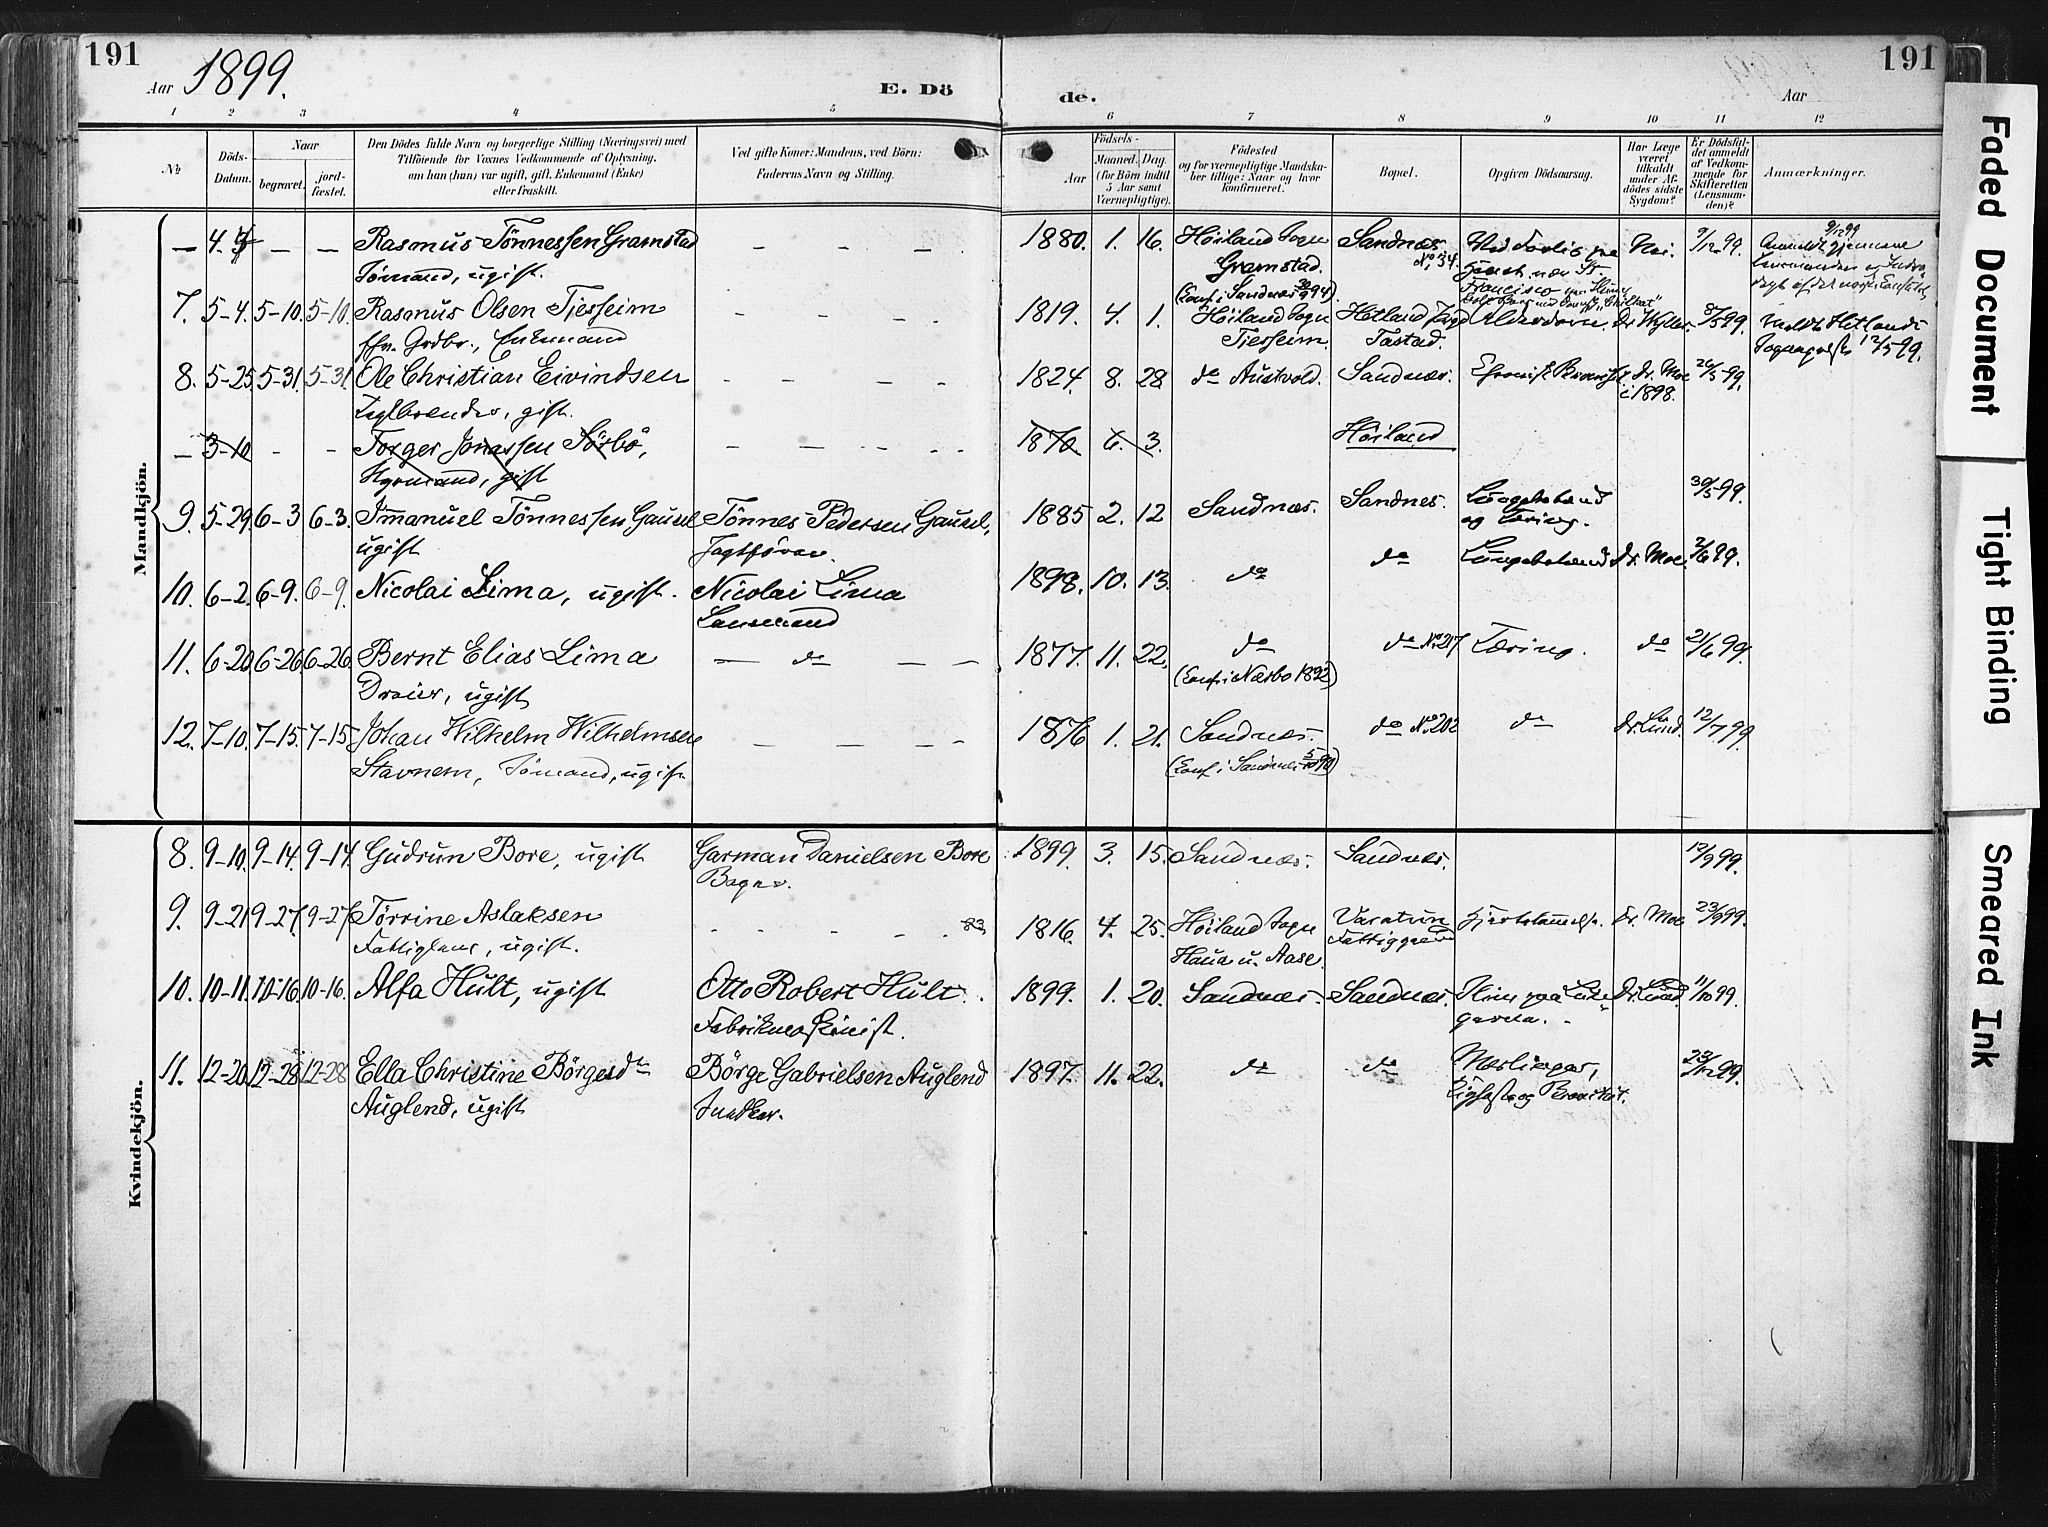 191
Aar 1899.
E. Dö
de.
Aar
191
1 2 3 4 5 6 7 8 9 10 11 12
№
Döds-
Datum.
Naar
begravet.
jord-
fæstet.
Den Dödes fulde Navn og borgerlige Stilling (Næringsvei) med
Tilföiende for Voxnes Vedkommende af Oplysning,
om han (hun) var ugift, gift, Enkemand (Enke)
eller fraskilt.
Ved gifte Koner: Mandens, ved Börn:
Faderens Navn og Stilling.
Födsels-
Aar
Maaned. Dag.
(for Börn indtil
5 Aar samt
Værnepligtige).
Födested
og for værnepligtige Mandska-
ber tillige: Naar og hvor
konfirmeret.
Bopæl.
Opgiven Dödsaarsag.
Har Læge
været
tilkaldt
under Af-
dödes sidste
Sygdom?
Er Dödsfal-
det anmeldt
af Vedkom-
mende for
Skifteretten
(Lensman-
den)?
Anmærkninger.
Mandkjön.
— 4. — — Rasmus Tönnessen Gramstad — — — — 1880. 1. 16. Höiland Sogn Sandnes Ved Forlis paa Nei. 9/12 99. 9/12 99
Sömand, ugift. Gramstad. No 34.
(Conf. i Sandnes 94) Francisco
7. 5-4. 5-10. 5-10. Rasmus Olsen Tjesseim - - - - 1819. 4. 1. Höiland Sogn Hetland Alderdom. Dr 8/5 99. Hetlands
fhv. Grdbr., Enkemand Tjesseim. Tastad. 12/5 99.
8. 5-25 5-31. 5-31. Ole Christian Eivindsen - - - - 1824. 8. 28 do Austvold. Sandnæs. Dr. Moe 26/5 99.
Teglbrænder, gift. i 1898.
— 3-10 - - Torger Jonassen Sörbö, — — — — 1870 6. 3. Höiland
gift
9. 5-29 6-3 6-3. Immanuel Tönnessen Gausel Tönnes Pedersen Gausel, 1885 2. 12 Sandnæs. Sandnes. Lungebetænd 30/5 99.
ugift Jagtförer. og Tæring.
10. 6-2. 6-9. 6-9. Nicolai Lima, ugift. Nicolai Lima 1898. 10. 13. do do Lungebetænd Dr. Moe 2/6 99.
Lensmand
11. 6-20 6-26 6-26 Bernt Elias Lima — do — — 1877. 11. 22. do do No 217 Tæring. do 21/6 99.
Dreier, ugift (Conf. i Nærbo 1892)
12. 7-10. 7-15. 7-15 Johan Wilhelm Wilhelmsen — — — — 1876 1. 21. Sandnæs. do No 202 do Dr. Lund. 12/7 99
Stavnem, Sömand, ugift (Conf. i Sandnæs 5/10 90)
Kvindekjön.
8. 9-10. 9-14. 9-14. Gudrun Bore, ugift Garman Danielsen Bore 1899. 3. 15. Sandnæs. Sandnæs. 12/9 99.
Bager.
9. 9-21 9-27. 9-27 Törrine Aslaksen - - - - 83 1816. 4. 25. Höiland Sogn Vasatun Hjertelammelse. Dr. Moe 23/9 99.
Fattiglem, ugift. Hana u. Aase. Fattiggaard
10. 10-11. 10-16. 10-16. Alfa Hult, ugift Otto Robert Hult. 1899. 1. 20. Sandnæs. Sandnæs. Dr. Lund. 11/10 99.
Fabrikmaskinist.
11. 12-20 12-28 12-28 Ella Christine Börgesdtr Börge Gabrielsen Auglend 1897. 11. 22. do do Mæslinger, 23/12 99.
Auglend, ugift og Bronchit.
Faded Document
Tight Binding
Smeared Ink